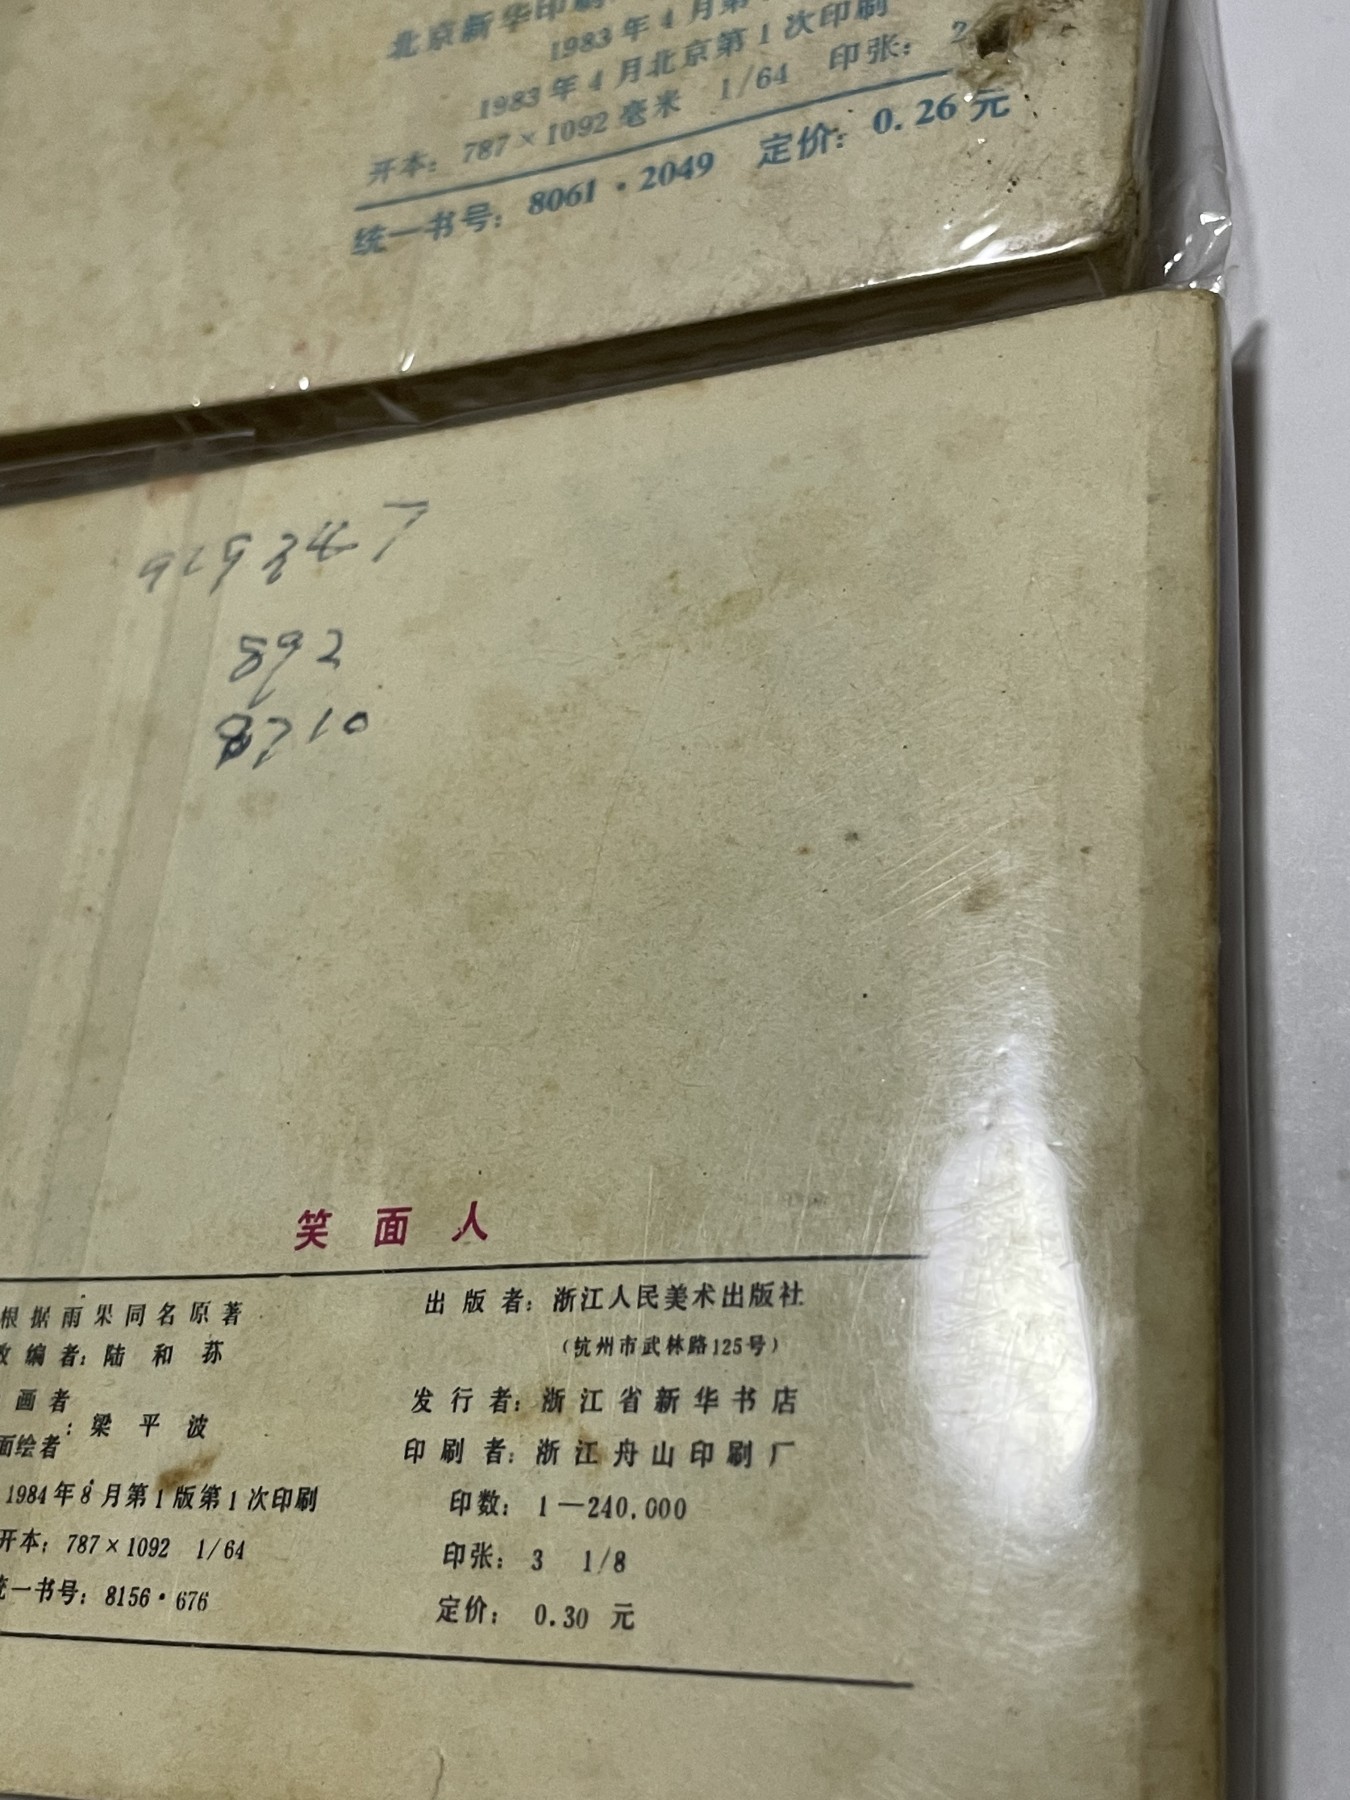 北京新华印刷
1983年4月第
1983年4月北京第1次印刷
开本：787×1092毫米 1/64 印张：2
统一书号：8061·2049 定价：0.26元
892
笑面人
根据雨果同名原著
编者：陆和荪
画者
面绘者
：梁平波
1984年8月第1版第1次印刷
开本：787×1092 1/64
一书号：8156·676
出版者：浙江人民美术出版社
（杭州市武林路125号）
发行者：浙江省新华书店
印刷者：浙江舟山印刷厂
印数：1—240,000
印张：3 1/8
定价：0.30元